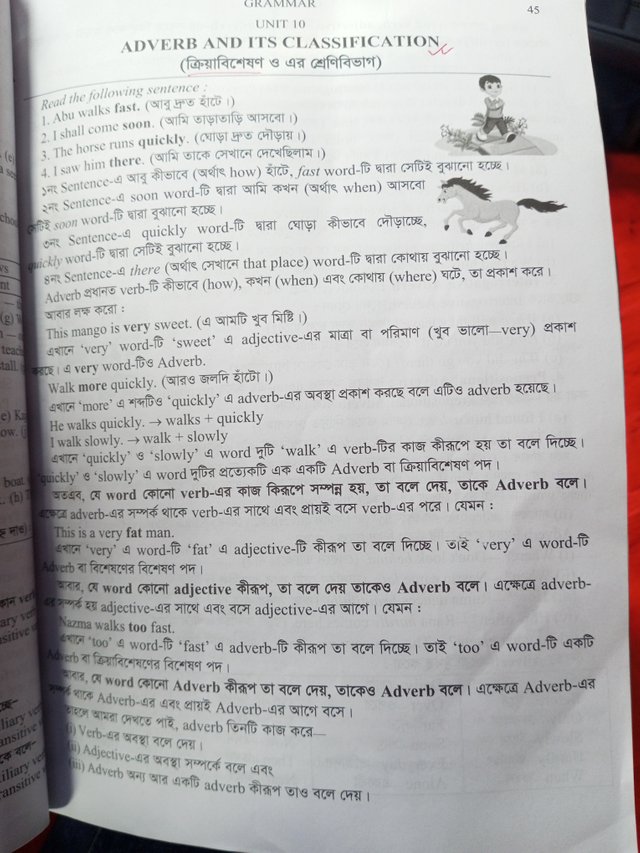 GRAMMAR
45
UNIT 10
ADVERB AND ITS CLASSIFICATION
(ক্রিয়াবিশেষণ ও এর শ্রেণিবিভাগ)
Read the following sentence :
1. Abu walks fast. (আবু দ্রুত হাঁটে।)
2. I shall come soon. (আমি তাড়াতাড়ি আসবো।)
3. The horse runs quickly. (ঘোড়া দ্রুত দৌড়ায়।)
4. I saw him there. (আমি তাকে সেখানে দেখেছিলাম।)
১নং Sentence-এ আবু কীভাবে (অর্থাৎ how) হাঁটে, fast word-টি দ্বারা সেটিই বুঝানো হচ্ছে।
২নং Sentence-এ soon word-টি দ্বারা আমি কখন (অর্থাৎ when) আসবো
সেটিই soon word-টি দ্বারা বুঝানো হচ্ছে।
৩নং Sentence-এ quickly word-টি দ্বারা ঘোড়া কীভাবে দৌড়াচ্ছে,
quickly word-টি দ্বারা সেটিই বুঝানো হচ্ছে।
৪নং Sentence-এ there (অর্থাৎ সেখানে that place) word-টি দ্বারা কোথায় বুঝানো হচ্ছে।
Adverb প্রধানত verb-টি কীভাবে (how), কখন (when) এবং কোথায় (where) ঘটে, তা প্রকাশ করে।
আবার লক্ষ করো :
This mango is very sweet. (এ আমটি খুব মিষ্টি।)
এখানে ‘very’ word-টি ‘sweet’ এ adjective-এর মাত্রা বা পরিমাণ (খুব ভালো—very) প্রকাশ
করছে। এ very word-টিও Adverb.
Walk more quickly. (আরও জলদি হাঁটো।)
এখানে ‘more’ এ শব্দটিও ‘quickly’ এ adverb-এর অবস্থা প্রকাশ করছে বলে এটিও adverb হয়েছে।
He walks quickly. → walks + quickly
I walk slowly. → walk + slowly
এখানে ‘quickly’ ও ‘slowly’ এ word দুটি ‘walk’ এ verb-টির কাজ কীরূপে হয় তা বলে দিচ্ছে।
‘quickly’ ও ‘slowly’ এ word দুটির প্রত্যেকটি এক একটি Adverb বা ক্রিয়াবিশেষণ পদ।
অতএব, যে word কোনো verb-এর কাজ কিরূপে সম্পন্ন হয়, তা বলে দেয়, তাকে Adverb বলে।
এক্ষেত্রে adverb-এর সম্পর্ক থাকে verb-এর সাথে এবং প্রায়ই বসে verb-এর পরে। যেমন :
This is a very fat man.
এখানে ‘very’ এ word-টি ‘fat’ এ adjective-টি কীরূপ তা বলে দিচ্ছে। তাই ‘very’ এ word-টি
Adverb বা বিশেষণের বিশেষণ পদ।
আবার, যে word কোনো adjective কীরূপ, তা বলে দেয় তাকেও Adverb বলে। এক্ষেত্রে adverb-
এর সম্পর্ক হয় adjective-এর সাথে এবং বসে adjective-এর আগে। যেমন :
Nazma walks too fast.
এখানে ‘too’ এ word-টি ‘fast’ এ adverb-টি কীরূপ তা বলে দিচ্ছে। তাই ‘too’ এ word-টি একটি
Adverb বা ক্রিয়াবিশেষণের বিশেষণ পদ।
আবার, যে word কোনো Adverb কীরূপ তা বলে দেয়, তাকেও Adverb বলে। এক্ষেত্রে Adverb-এর
সম্পর্ক থাকে Adverb-এর এবং প্রায়ই Adverb-এর আগে বসে।
তাহলে আমরা দেখতে পাই, adverb তিনটি কাজ করে—
(i) Verb-এর অবস্থা বলে দেয়।
(ii) Adjective-এর অবস্থা সম্পর্কে বলে এবং
(iii) Adverb অন্য আর একটি adverb কীরূপ তাও বলে দেয়।